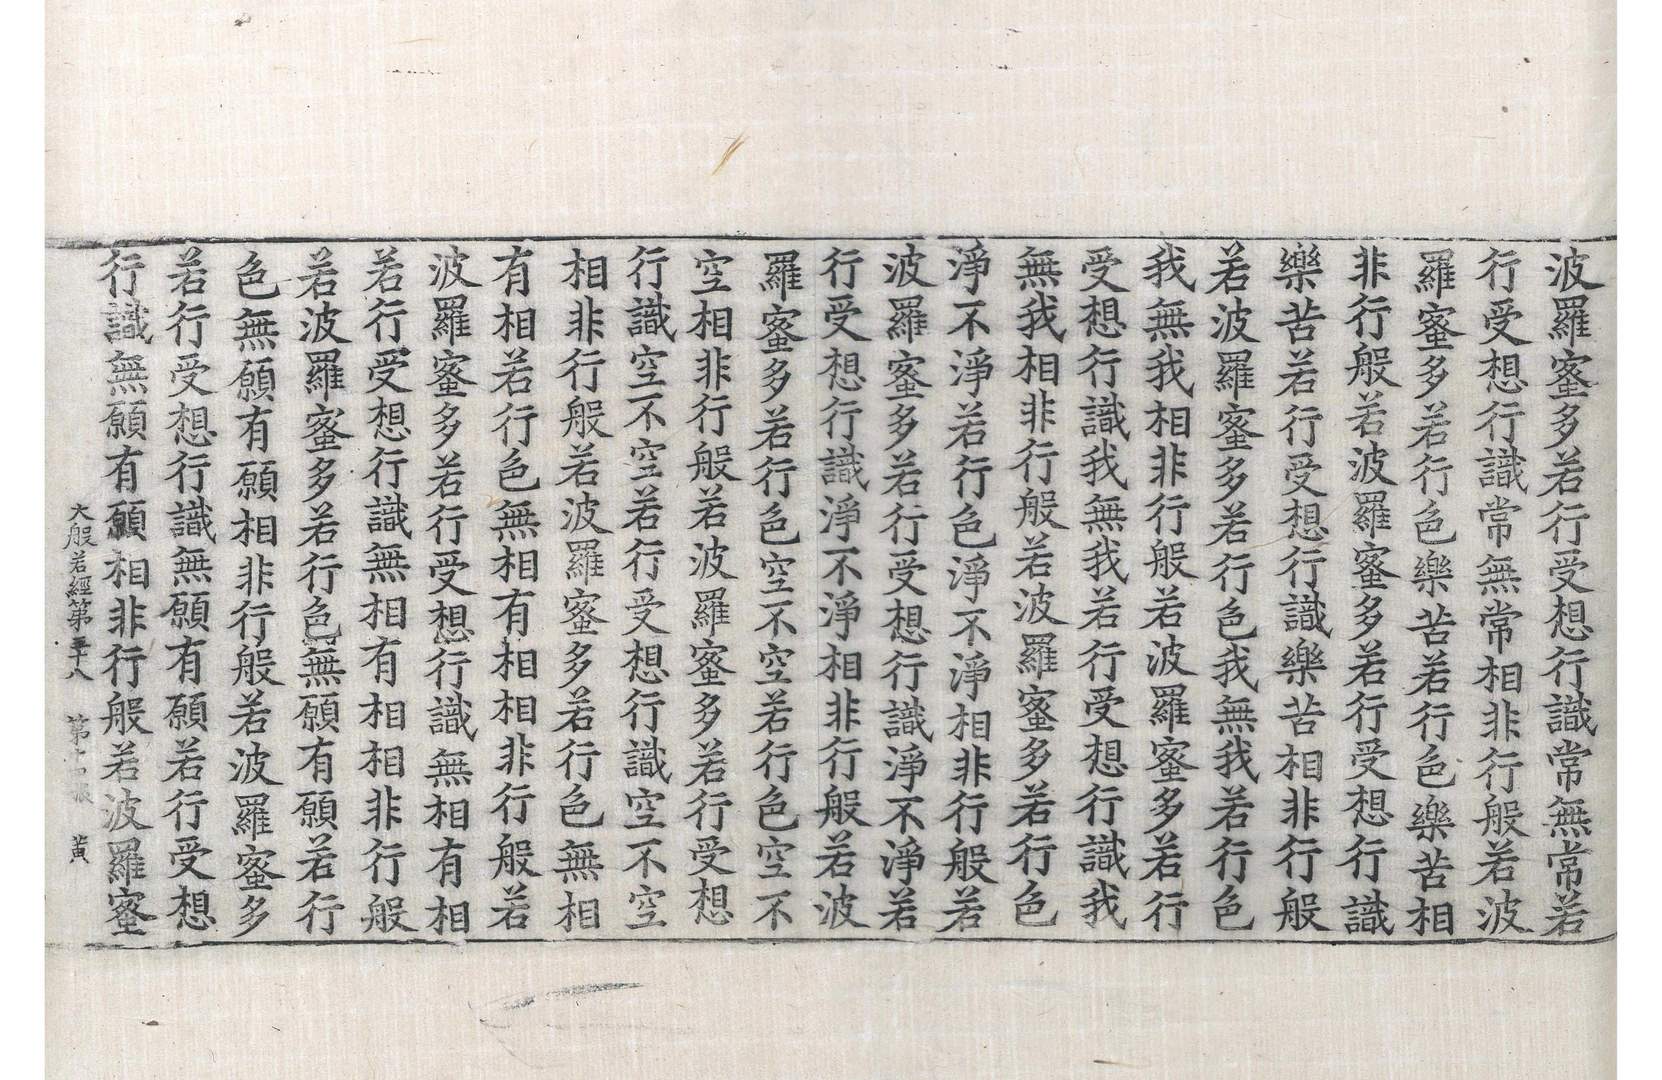 波羅蜜多若行受想行識常無常若
行受想行識常無常相非行般若波
羅蜜多若行色樂苦若行色樂苦相
非行般若波羅蜜多若行受想行識
樂苦若行受想行識樂苦相非行般
若波羅蜜多若行色我無我若行色
我無我相非行般若波羅蜜多若行
受想行識我無我若行受想行識我
無我相非行般若波羅蜜多若行色
淨不淨若行色淨不淨相非行般若
波羅蜜多若行受想行識淨不淨若
行受想行識淨不淨相非行般若波
羅蜜多若行色空不空若行色空不
空相非行般若波羅蜜多若行受想
行識空不空若行受想行識空不空
相非行般若波羅蜜多若行色無相
有相若行色無相有相相非行般若
波羅蜜多若行受想行識無相有相
若行受想行識無相有相相非行般
若波羅蜜多若行色無願有願若行
色無願有願相非行般若波羅蜜多
若行受想行識無願有願若行受想
行識無願有願相非行般若波羅蜜
大般若經第三十八 第十一張 黃